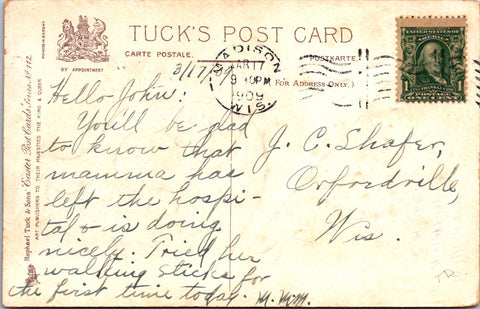 TUCK'S POST CARD
CARTE POSTALE.
POSTKARTE.
BY APPOINTMENT
(FOR ADDRESS ONLY.)
MADISON
MAR 17
9 30PM
1909
WIS.
1
Raphael Tuck & Sons' "Easter" Post Cards Series No 112.
ART PUBLISHERS TO THEIR MAJESTIES THE KING & QUEEN
PRINTED IN
3/17/09
Hello John:
You'll be glad
to know that
mamma has
left the hospi-
tal & is doing
nicely. Tried her
walking sticks for
the first time today.
J. C. Shafer,
Orfordville,
Wis.